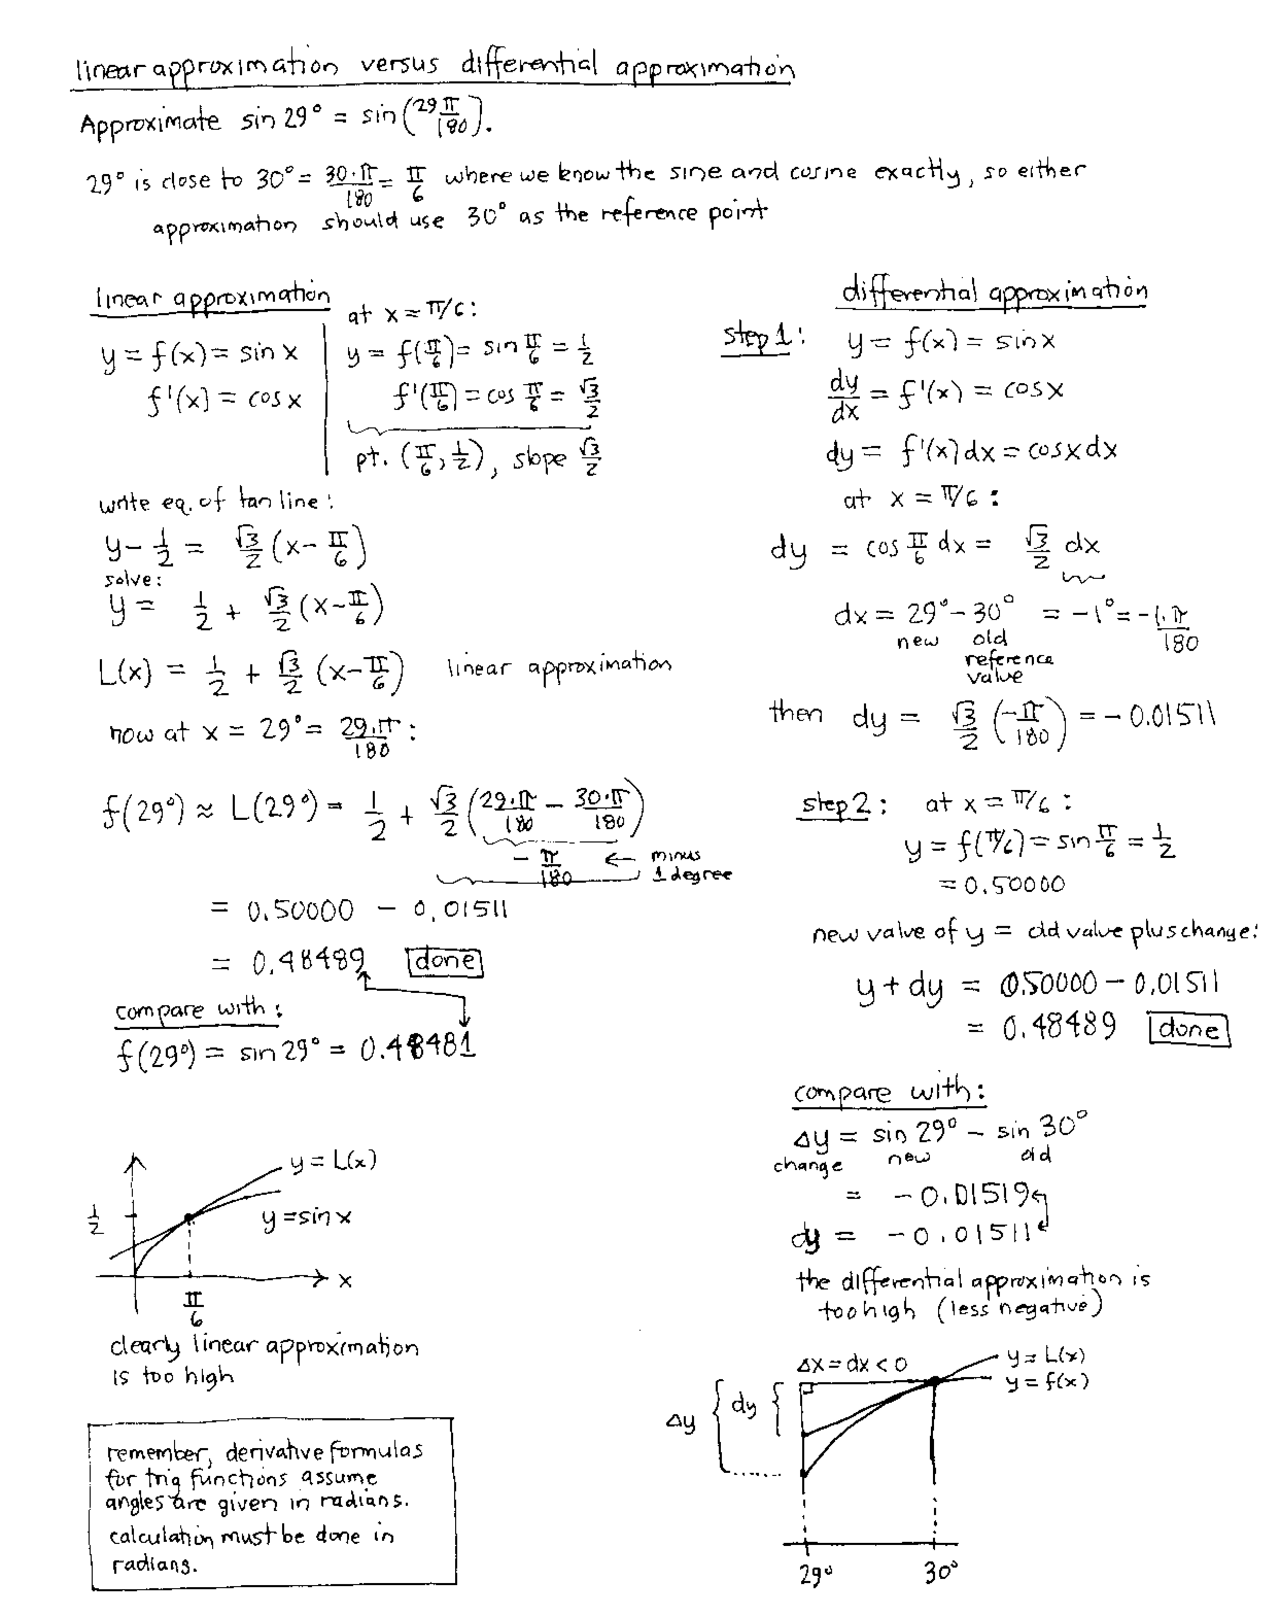 linear approximation versus differential approximation
Approximate sin 29° = sin(29π/180).
29° is close to 30° = 30·π/180 = π/6 where we know the sine and cosine exactly, so either
approximation should use 30° as the reference point
linear approximation
y = f(x) = sin x
f'(x) = cos x
at x = π/6:
y = f(π/6) = sin π/6 = 1/2
f'(π/6) = cos π/6 = √3/2
pt. (π/6, 1/2), slope √3/2
write eq. of tan line:
y - 1/2 = √3/2 (x - π/6)
solve:
y = 1/2 + √3/2 (x - π/6)
L(x) = 1/2 + √3/2 (x - π/6) linear approximation
now at x = 29° = 29·π/180:
f(29°) ≈ L(29°) = 1/2 + √3/2 (29·π/180 - 30·π/180)
-π/180 ← minus
1 degree
= 0.50000 - 0.01511
= 0.48489 done
compare with:
f(29°) = sin 29° = 0.48481
y = L(x)
1/2
y = sin x
x
π/6
clearly linear approximation
is too high
remember, derivative formulas
for trig functions assume
angles are given in radians.
calculation must be done in
radians.
differential approximation
step 1: y = f(x) = sin x
dy/dx = f'(x) = cos x
dy = f'(x) dx = cos x dx
at x = π/6:
dy = cos π/6 dx = √3/2 dx
dx = 29° - 30° = -1° = -1·π/180
new old
reference
value
then dy = √3/2 (-π/180) = -0.01511
step 2: at x = π/6:
y = f(π/6) = sin π/6 = 1/2
= 0.50000
new value of y = old value plus change:
y + dy = 0.50000 - 0.01511
= 0.48489 done
compare with:
Δy = sin 29° - sin 30°
change new old
= -0.01519
dy = -0.01511
the differential approximation is
too high (less negative)
Δx = dx < 0
y = L(x)
y = f(x)
Δy dy
29° 30°